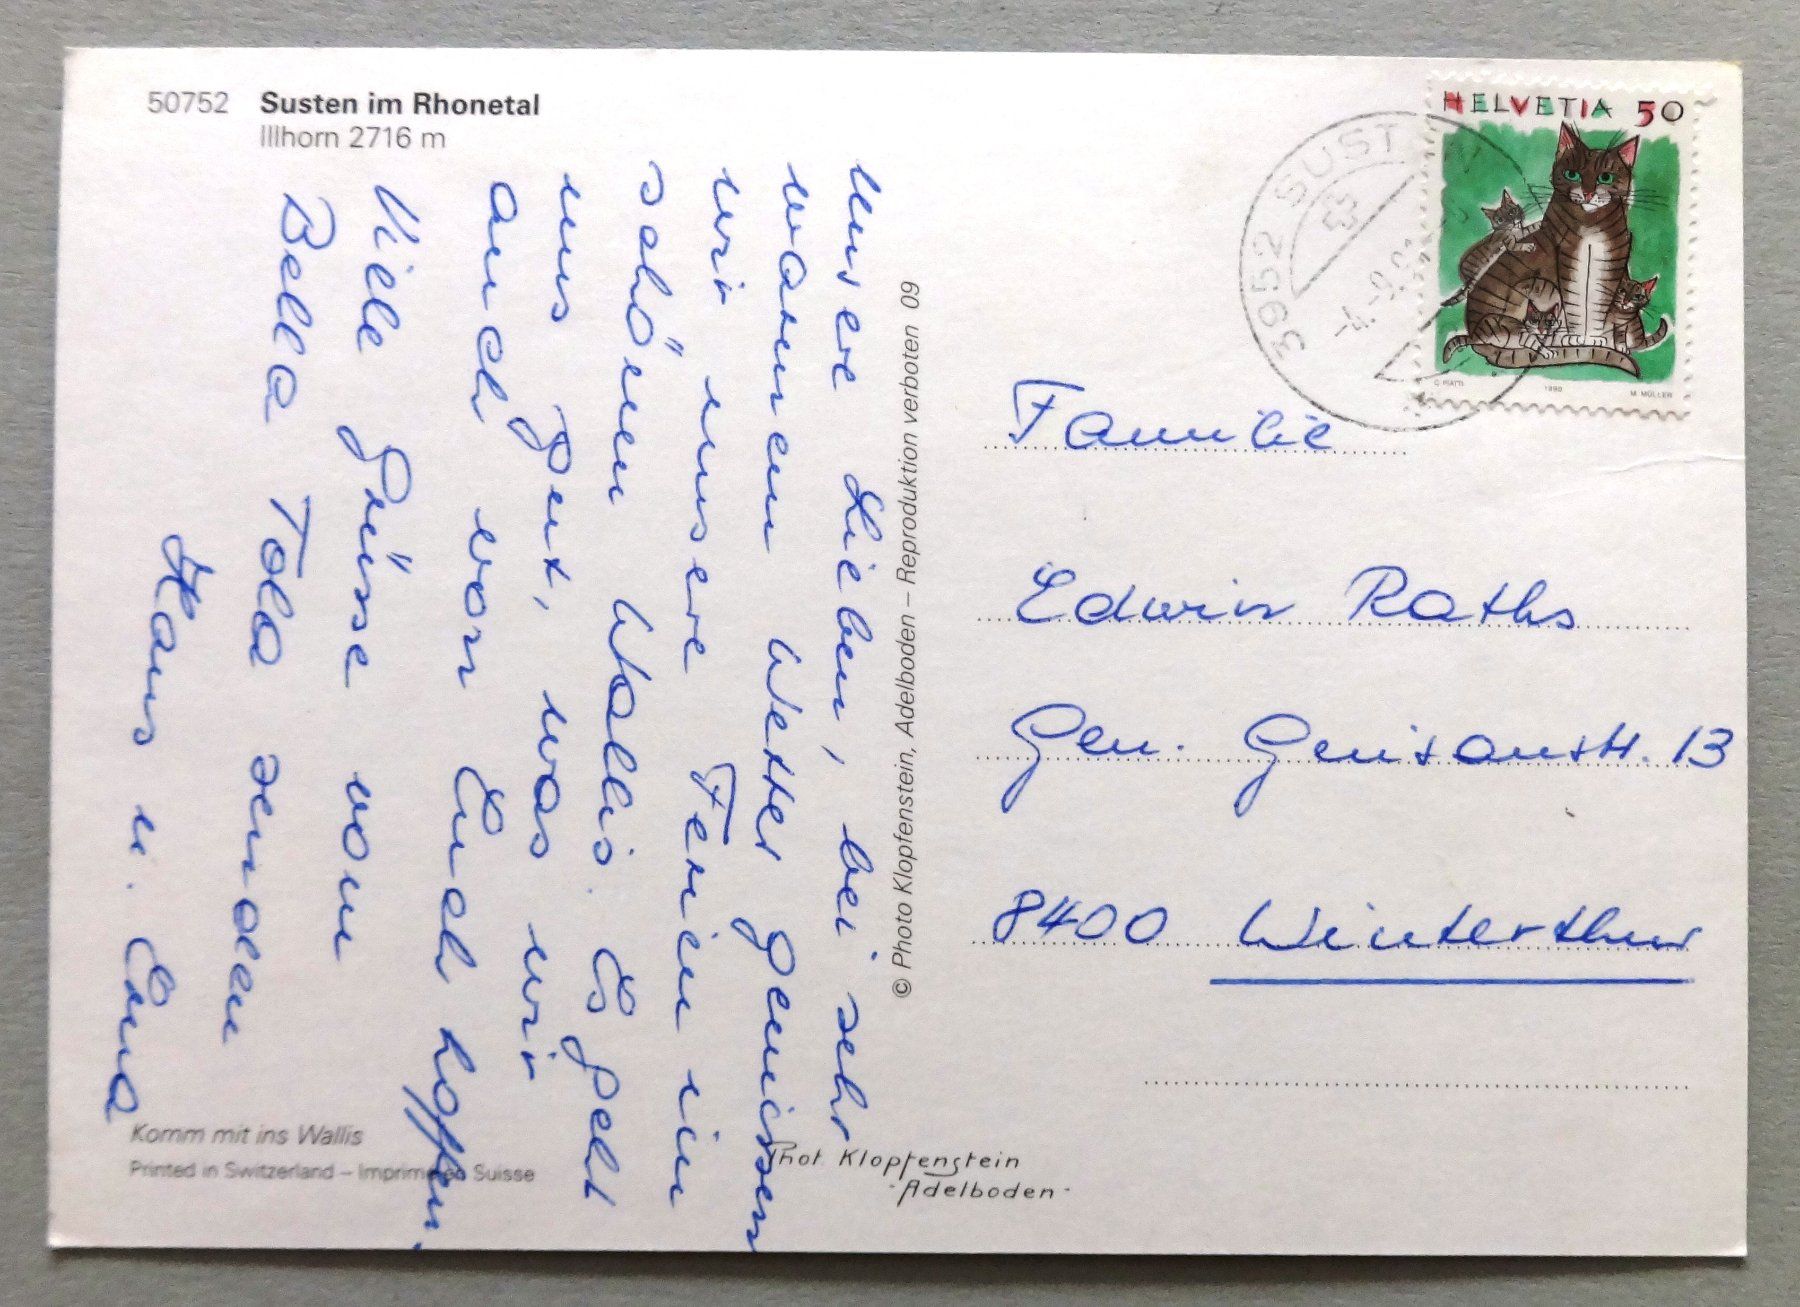 50752 Susten im Rhonetal
Illhorn 2716 m
Unsere Lieben, bei sehr
warmem Wetter geniessen
wir unsere Ferien im
schönen Wallis. Es geht
uns gut, was wir
auch von Euch hoffen.
Viele Grüsse vom
Bella Tola senden
Hans u. Erna
Komm mit ins Wallis
Printed in Switzerland – Imprimé en Suisse
© Photo Klopfenstein, Adelboden – Reproduktion verboten 09
Phot Klopfenstein
- Adelboden -
HELVETIA 50
C PIATTI 1990 M. MÜLLER
3952 SUSTEN
-4.-9.
Familie
Edwin Raths
Gen. Guisanstr. 13
8400 Winterthur